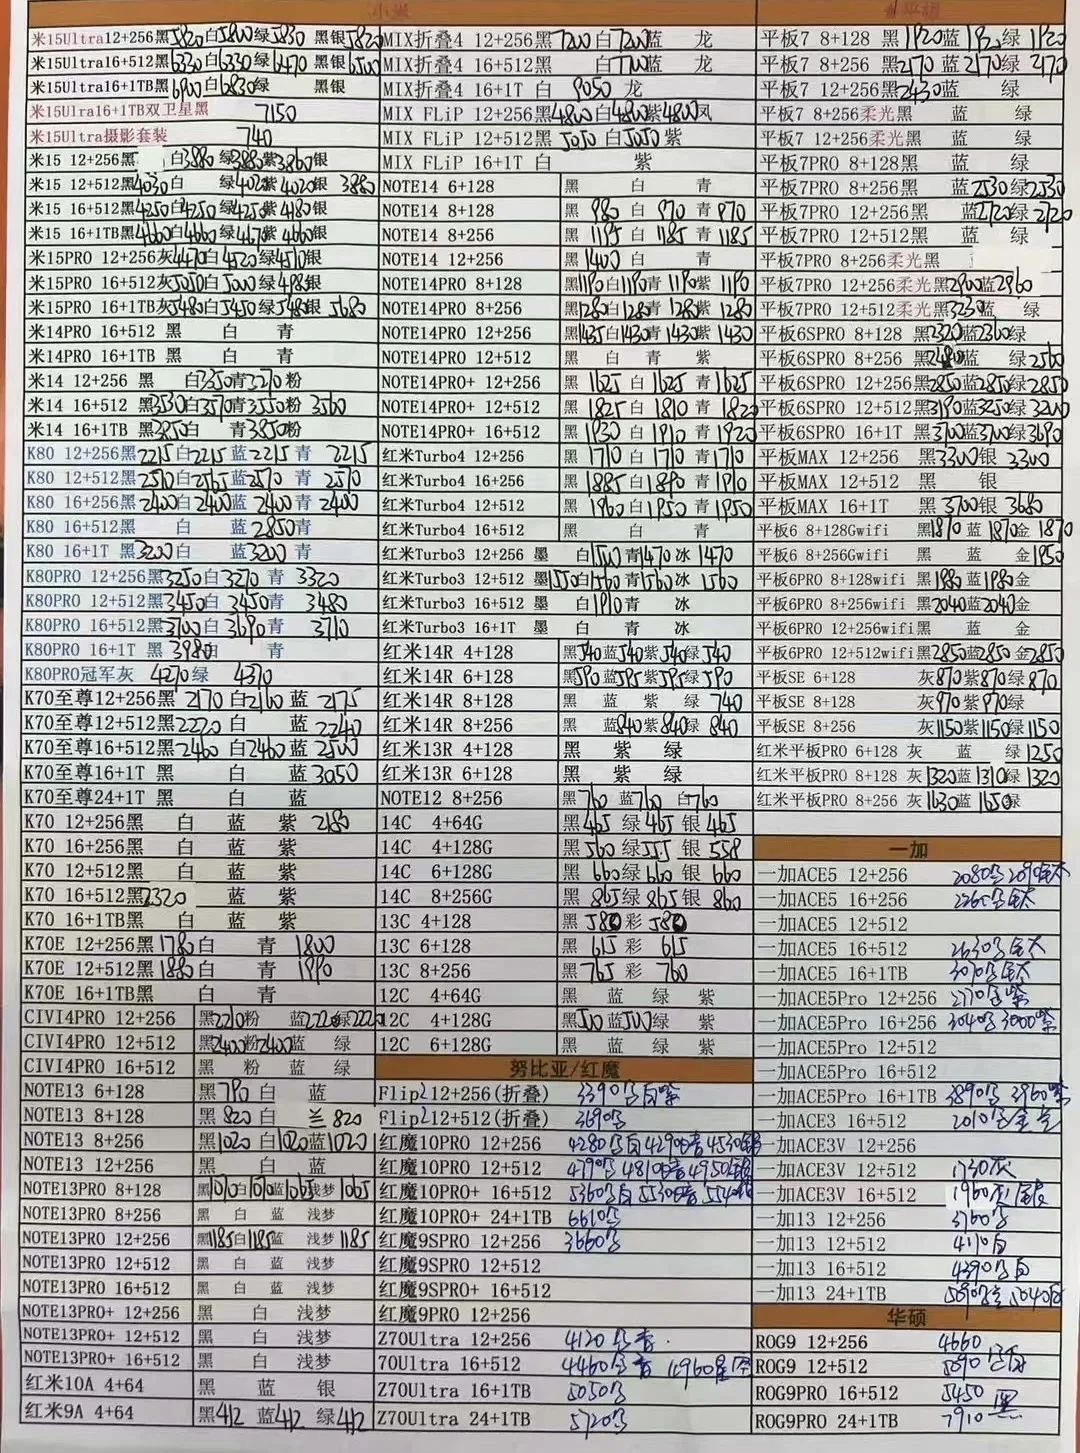 小米
米15Ultra12+256黑5820白5800绿5830 黑银5820
米15Ultra16+512黑6330白6330绿6470 黑银6500
米15Ultra16+1TB黑6900白6830绿 黑银
米15Ulra16+1TB双卫星黑 7150
米15Ultra摄影套装 740
米15 12+256黑 白3880 绿3880紫3860银
米15 12+512黑4030白 绿4020紫4020银 3880
米15 16+512黑4250白4250绿4250紫4180银
米15 16+1TB黑4660白4660绿4670紫4660银
米15PRO 12+256灰4470白4520绿4510银
米15PRO 16+512灰5050白5000绿4980银
米15PRO 16+1TB灰5480白5450绿5480银 5680
米14PRO 16+512 黑 白 青
米14PRO 16+1TB 黑 白 青
米14 12+256 黑 白3350青3270粉
米14 16+512 黑3530白3570青3550粉 3560
米14 16+1TB 黑3850白 青3850粉
K80 12+256黑2215白2215蓝2215青 2215
K80 12+512黑2570白2565蓝2570 青 2570
K80 16+256黑2400白2400蓝2400青2400
K80 16+512黑 白 蓝2850青
K80 16+1T 黑3200白 蓝3200 青
K80PRO 12+256黑3250白3270 青 3320
K80PRO 12+512黑3450白3450青 3480
K80PRO 16+512黑3700白3690青 3710
K80PRO 16+1T 黑3980白 青
K80PRO冠军灰 4270绿 4370
K70至尊12+256黑 2170 白2160 蓝 2175
K70至尊12+512黑2220 白 蓝 2240
K70至尊16+512黑2460 白2460蓝 2500
K70至尊16+1T 黑 白 蓝3050
K70至尊24+1T 黑 白 蓝
K70 12+256黑 白 蓝 紫 2180
K70 16+256黑 白 蓝 紫
K70 12+512黑 白 蓝 紫
K70 16+512黑2320 蓝 紫
K70 16+1TB黑 白 蓝 紫
K70E 12+256黑1780白 青 1800
K70E 12+512黑1880白 青 1990
K70E 16+1TB黑 白 青
CIVI4PRO 12+256 黑2210粉 蓝2220绿2220
CIVI4PRO 12+512 黑2400粉2400蓝 绿
CIVI4PRO 16+512 黑 粉 蓝 绿
NOTE13 6+128 黑790白 蓝
NOTE13 8+128 黑820白 兰820
NOTE13 8+256 黑1020白1020蓝1020
NOTE13 12+256 黑 白 蓝
NOTE13PRO 8+128 黑1070白1070蓝1065浅梦1065
NOTE13PRO 8+256 黑 白 蓝 浅梦
NOTE13PRO 12+256 黑1185白1185蓝 浅梦1185
NOTE13PRO 12+512 黑 白 蓝 浅梦
NOTE13PRO 16+512 黑 白 蓝 浅梦
NOTE13PRO+ 12+256 黑 白 浅梦
NOTE13PRO+ 12+512 黑 白 浅梦
NOTE13PRO+ 16+512 黑 白 浅梦
红米10A 4+64 黑 蓝 银
红米9A 4+64 黑412 蓝412 绿412
MIX折叠4 12+256黑7200白7200蓝 龙
MIX折叠4 16+512黑 白7700蓝 龙
MIX折叠4 16+1T 白 9050 龙
MIX FLiP 12+256黑4800白4800紫4800凤
MIX FLiP 12+512黑5050白5050紫
MIX FLiP 16+1T 白 紫
NOTE14 6+128 黑 白 青
NOTE14 8+128 黑980 白970 青970
NOTE14 8+256 黑1185 白1185 青1185
NOTE14 12+256 黑1400白 青
NOTE14PRO 8+128 黑1190白1190青1190紫1190
NOTE14PRO 8+256 黑1280白1280青1280紫1280
NOTE14PRO 12+256 黑1435白1430青1430紫1430
NOTE14PRO 12+512 黑 白 青 紫
NOTE14PRO+ 12+256 黑1625 白1625 青1625
NOTE14PRO+ 12+512 黑1825 白1810 青1820
NOTE14PRO+ 16+512 黑1930 白1910 青1920
红米Turbo4 12+256 黑1710白1710青1710
红米Turbo4 16+256 黑1885白1890青1910
红米Turbo4 12+512 黑1960白1950青1950
红米Turbo4 16+512 黑 白 青
红米Turbo3 12+256 墨 白1500青1470冰 1470
红米Turbo3 12+512 墨1550白1560青1560冰 1560
红米Turbo3 16+512 墨 白1910青 冰
红米Turbo3 16+1T 墨 白 青 冰
红米14R 4+128 黑540蓝540紫540绿540
红米14R 6+128 黑590蓝595紫595绿590
红米14R 8+128 黑 蓝 紫 绿 740
红米14R 8+256 黑 蓝840紫840绿 840
红米13R 4+128 黑 紫 绿
红米13R 6+128 黑 紫 绿
NOTE12 8+256 黑760 蓝760 白760
14C 4+64G 黑465 绿465 银465
14C 4+128G 黑560绿555 银558
14C 6+128G 黑660绿660 银660
14C 8+256G 黑865绿865银860
13C 4+128 黑580彩580
13C 6+128 黑615 彩 615
13C 8+256 黑765 彩 760
12C 4+64G 黑 蓝 绿 紫
12C 4+128G 黑500蓝500绿 紫
12C 6+128G 黑 蓝 绿 紫
努比亚/红魔
Flip2 12+256(折叠) 3390
Flip2 12+512(折叠) 3690
红魔10PRO 12+256 4280 4290 4530
红魔10PRO 12+512 4790 4810 4950
红魔10PRO+ 16+512 5360 5530
红魔10PRO+ 24+1TB 6610
红魔9SPRO 12+256 3660
红魔9SPRO 12+512
红魔9SPRO+ 16+512
红魔9PRO 12+256
Z70Ultra 12+256 4120
70Ultra 16+512 4460 4960
Z70Ultra 16+1TB 5050
Z70Ultra 24+1TB 5720
平板7 8+128 黑1920蓝1920绿1920
平板7 8+256 黑2170蓝2170绿2170
平板7 12+256黑2430蓝
平板7 8+256柔光黑 蓝 绿
平板7 12+256柔光黑 蓝 绿
平板7PRO 8+128黑 蓝 绿
平板7PRO 8+256黑 蓝2530绿2530
平板7PRO 12+256黑 蓝2720绿2720
平板7PRO 12+512黑 蓝 绿
平板7PRO 8+256柔光黑
平板7PRO 12+256柔光黑2960蓝2960
平板7PRO 12+512柔光黑3230蓝 绿
平板6SPRO 8+128 黑2320蓝2360绿
平板6SPRO 8+256 黑2480蓝 绿2560
平板6SPRO 12+256黑2850蓝2850绿2850
平板6SPRO 12+512黑3190蓝3250绿3200
平板6SPRO 16+1T 黑3700蓝3700绿3690
平板MAX 12+256 黑3300银 3300
平板MAX 12+512 黑 银
平板MAX 16+1T 黑 3700银 3680
平板6 8+128Gwifi 黑1870蓝1870金1870
平板6 8+256Gwifi 黑 蓝 金1950
平板6PRO 8+128wifi 黑1980蓝1980金
平板6PRO 8+256wifi 黑2040蓝2040金
平板6PRO 12+256wifi黑 蓝 金
平板6PRO 12+512wifi黑2850蓝2850金2850
平板SE 6+128 灰870紫870绿870
平板SE 8+128 灰970紫970绿
平板SE 8+256 灰1150紫1150绿1150
红米平板PRO 6+128 灰 蓝 绿1250
红米平板PRO 8+128 灰1320蓝1310绿1320
红米平板PRO 8+256 灰1630蓝1650绿
一加
一加ACE5 12+256 2080
一加ACE5 16+256 2260
一加ACE5 12+512
一加ACE5 16+512 2630
一加ACE5 16+1TB 3070
一加ACE5Pro 12+256 2770
一加ACE5Pro 16+256 3040 3000紫
一加ACE5Pro 12+512
一加ACE5Pro 16+512
一加ACE5Pro 16+1TB 3890 3960紫
一加ACE3 16+512 2010
一加ACE3V 12+256
一加ACE3V 12+512 1730灰
一加ACE3V 16+512 1960
一加13 12+256 3760
一加13 12+512 4170白
一加13 16+512 4390
一加13 24+1TB 5090 5040白
华硕
ROG9 12+256 4660
ROG9 12+512 5090
ROG9PRO 16+512 5450 黑
ROG9PRO 24+1TB 7910